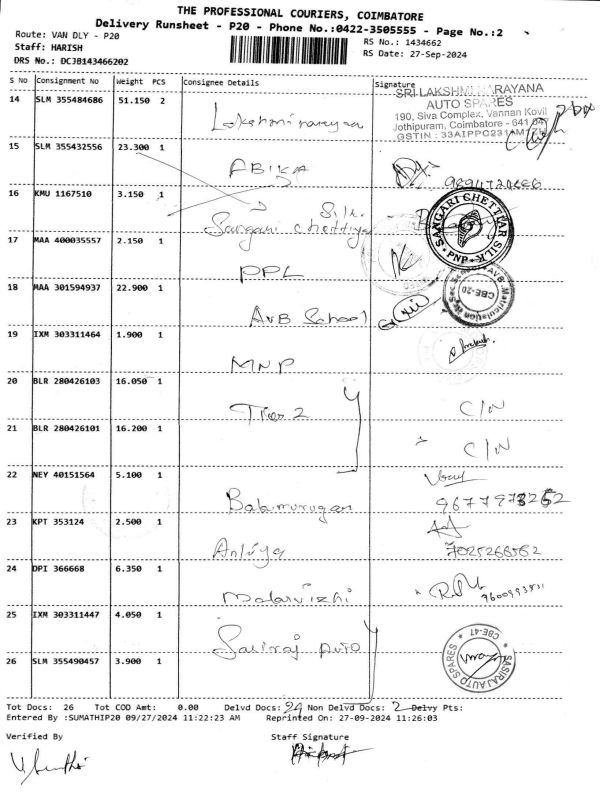 THE PROFESSIONAL COURIERS, COIMBATORE
Delivery Runsheet - P20 - Phone No.:0422-3505555 - Page No.:2
Route: VAN DLY - P20
Staff: HARISH
DRS No.: DCJB143466202
RS No.: 1434662
RS Date: 27-Sep-2024
S No Consignment No Weight PCS Consignee Details Signature
14 SLM 355484686 51.150 2 Lakshminarayana
SRI LAKSHMI NARAYANA
AUTO SPARES
190, Siva Complex, Vannan Kovil
Jothipuram, Coimbatore - 641 047
GSTIN : 33AIPPC
15 SLM 355432556 23.300 1 ABIKA
16 KMU 1167510 3.150 1 Sangari Chettiyar Silk
SANGARI CHETTIAR SILK
PNP
17 MAA 400035557 2.150 1 PPL
18 MAA 301594937 22.900 1 AVB School
AVB Matriculation Hr Sec School
CBE-20
19 IXM 303311464 1.900 1 MNP
20 BLR 280426103 16.050 1 Tier 2 C/N
21 BLR 280426101 16.200 1 C/N
22 NEY 40151564 5.100 1 Balamurugan
23 KPT 353124 2.500 1
24 DPI 366668 6.350 1 Malarvizhi
25 IXM 303311447 4.050 1 Sasiraj Auto
SASIRAJ AUTO SPARES
CBE-47
26 SLM 355490457 3.900 1
Tot Docs: 26 Tot COD Amt: 0.00 Delvd Docs: 24 Non Delvd Docs: 2 Delvy Pts:
Entered By :SUMATHIP20 09/27/2024 11:22:23 AM Reprinted On: 27-09-2024 11:26:03
Verified By Staff Signature